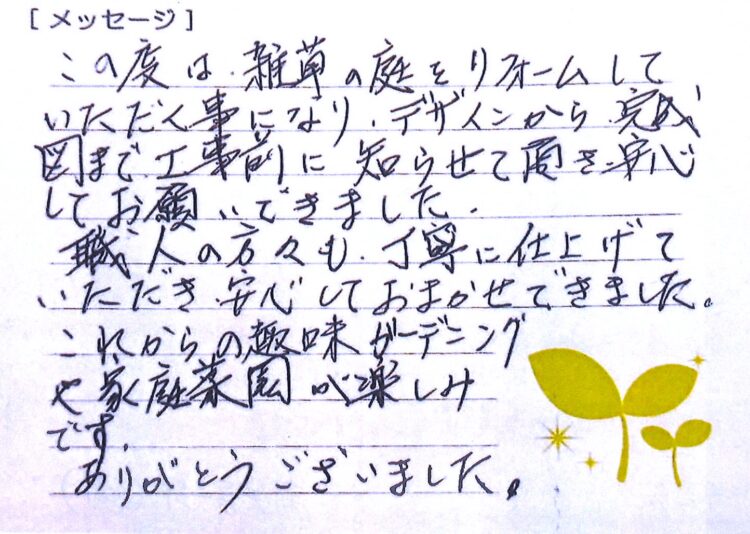 [メッセージ]
この度は、雑草の庭をリフォームして
いただく事になり、デザインから完成
図まで工事前に知らせて頂き安心
してお願いできました。
職人の方々も、丁寧に仕上げて
いただき安心しておまかせできました。
これからの趣味ガーデニング
や家庭菜園が楽しみ
です。
ありがとうございました。